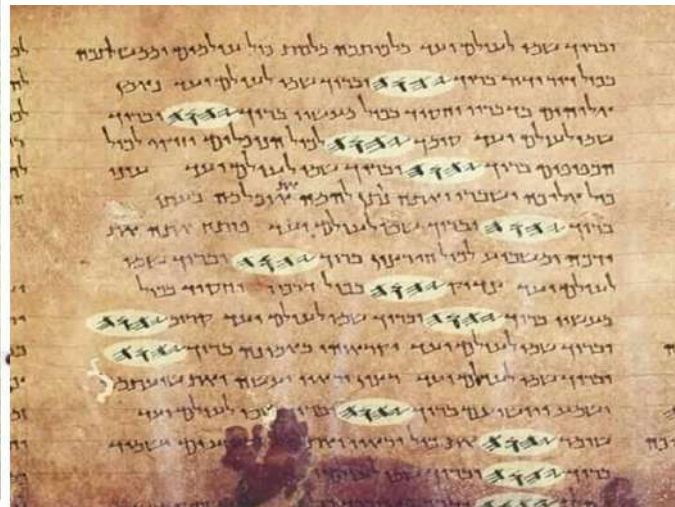 וברוך שמו לעולם ועד מלכותכה מלכות כול עולמים וממשלתכה
בכול דור ודור ברוך 𐤉𐤄𐤅𐤄 וברוך שמו לעולם ועד נאמן
אלוהים בדבריו וחסיד בכול מעשיו ברוך 𐤉𐤄𐤅𐤄 וברוך
שמו לעולם ועד סומך 𐤉𐤄𐤅𐤄 לכול הנופלים וזוקף לכול
הכפופים ברוך 𐤉𐤄𐤅𐤄 וברוך שמו לעולם ועד עיני
כול אליכה ישברו ואתה נותן להמה את אוכלמה בעתו
ברוך 𐤉𐤄𐤅𐤄 וברוך שמו לעולם ועד פותח אתה את
ידכה ומשביע לכול חי רצון ברוך 𐤉𐤄𐤅𐤄 וברוך שמו
לעולם ועד צדיק 𐤉𐤄𐤅𐤄 בכול דרכיו וחסיד בכול
מעשיו ברוך 𐤉𐤄𐤅𐤄 וברוך שמו לעולם ועד קרוב 𐤉𐤄𐤅𐤄
וברוך שמו לעולם ועד יקראוהו באמונה ברוך 𐤉𐤄𐤅𐤄
וברוך שמו לעולם ועד רצון יראיו יעשה ואת שועתמה
ישמע ויושיעם ברוך 𐤉𐤄𐤅𐤄 וברוך שמו לעולם ועד
שומר 𐤉𐤄𐤅𐤄 את כול יראיו ואת ישמיד
ברוך 𐤉𐤄𐤅𐤄 וברוך שמו לעולם
𐤉𐤄𐤅𐤄